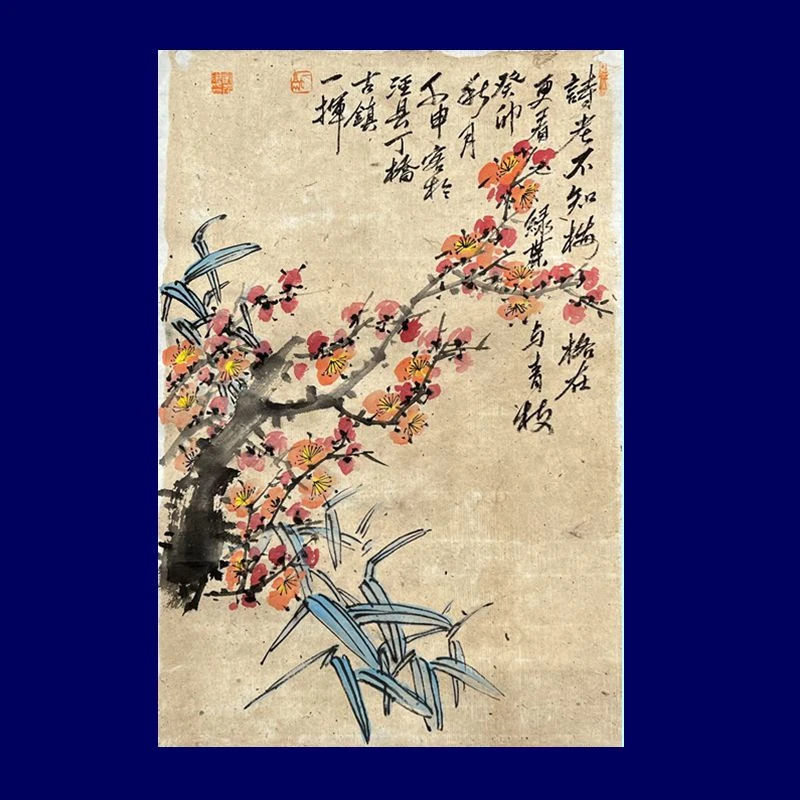 詩老不知梅格在
更看綠葉与青枝
癸卯
秋月
壬申客於
泾县丁橋
古鎮
一揮